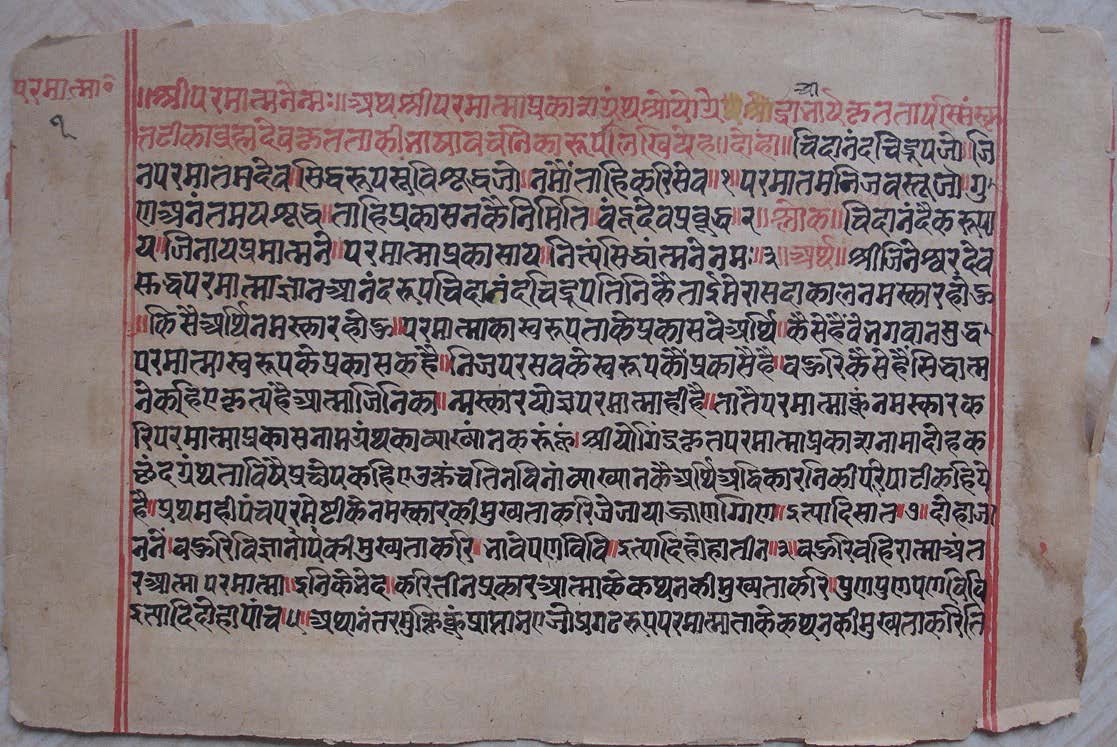 परमात्मा॰
१
॥श्रीपरमात्मनेनमः॥अथश्रीपरमात्माप्रकाशग्रंथश्रीयोगें
तटीकाब्रह्मदेवकृतताकीभाषावचनिकारूपीलिखियेहै॥दोहा॥चिदानंदचिद्रूपजो॥जि
नपरमातमदेव॥सिद्धरूपसुविशुद्धजो॥नमौंताहिकरिसेव॥१॥परमातमनिजवस्तूजो॥गु
णअनंतमयशुद्ध॥ताहिप्रकासनकैनिमिति॥वंदूदेवप्रबुद्ध॥२॥श्लोक॥चिदानंदैकरूपा
य॥जिनायप्रमात्मने॥परमात्माप्रकासाय॥नित्यंसिद्धांत्मनेनमः॥३॥अर्थ॥श्रीजिनेश्वरदेव
परमात्माज्ञानआनंदरूपचिदानंदचिद्रूपतिनिकैतांईमेरासदाकालनमस्कारहोऊ
॥किसैअर्थिनमस्कारहोऊ॥परमात्माकास्वरूपताकेप्रकासवेअर्थि॥कैसेहैवेभगवानसुद्ध
परमात्मास्वरूपकेप्रकासकहै॥निजपरसबकेस्वरूपकौंप्रकासैहै॥बऊरिकैसेहैसिद्धात्म
नेकहिएकृत्यंहैआत्माजिनिका॥परमात्माहीहै॥तातैपरमात्माकूंनमस्कारक
रिपरमात्माप्रकासनामग्रंथकाव्याख्यांनकरूंहूं॥श्रीयोगिंद्रकृतपरमात्माप्रकाशनामादोहक
छंदग्रंथताविषै
है॥प्रथमहीपंचपरमेष्टीकेनमस्कारकीमुख्यताकरिजेजायाज्झाणग्गिए॥इत्यादिसात॥७॥दोहाजा
ननं॥बऊरिविज्ञानांपंकीमुख्यताकरि॥भावेपणविवि॥इत्यादिदोहातीन॥३॥बऊरिबहिरात्माअंत
रआत्मापरमात्मा॥इनिकेभेद॥करितीनप्रकारआत्माकेकथनकीमुख्यताकरि॥पुणपुणपणविवि
इत्यादिदोहापांच॥५॥अथानंतरमुक्तिकूंप्राप्तभएजोप्रगटरूपपरमात्माताकेकथनकीमुख्यताकरिति